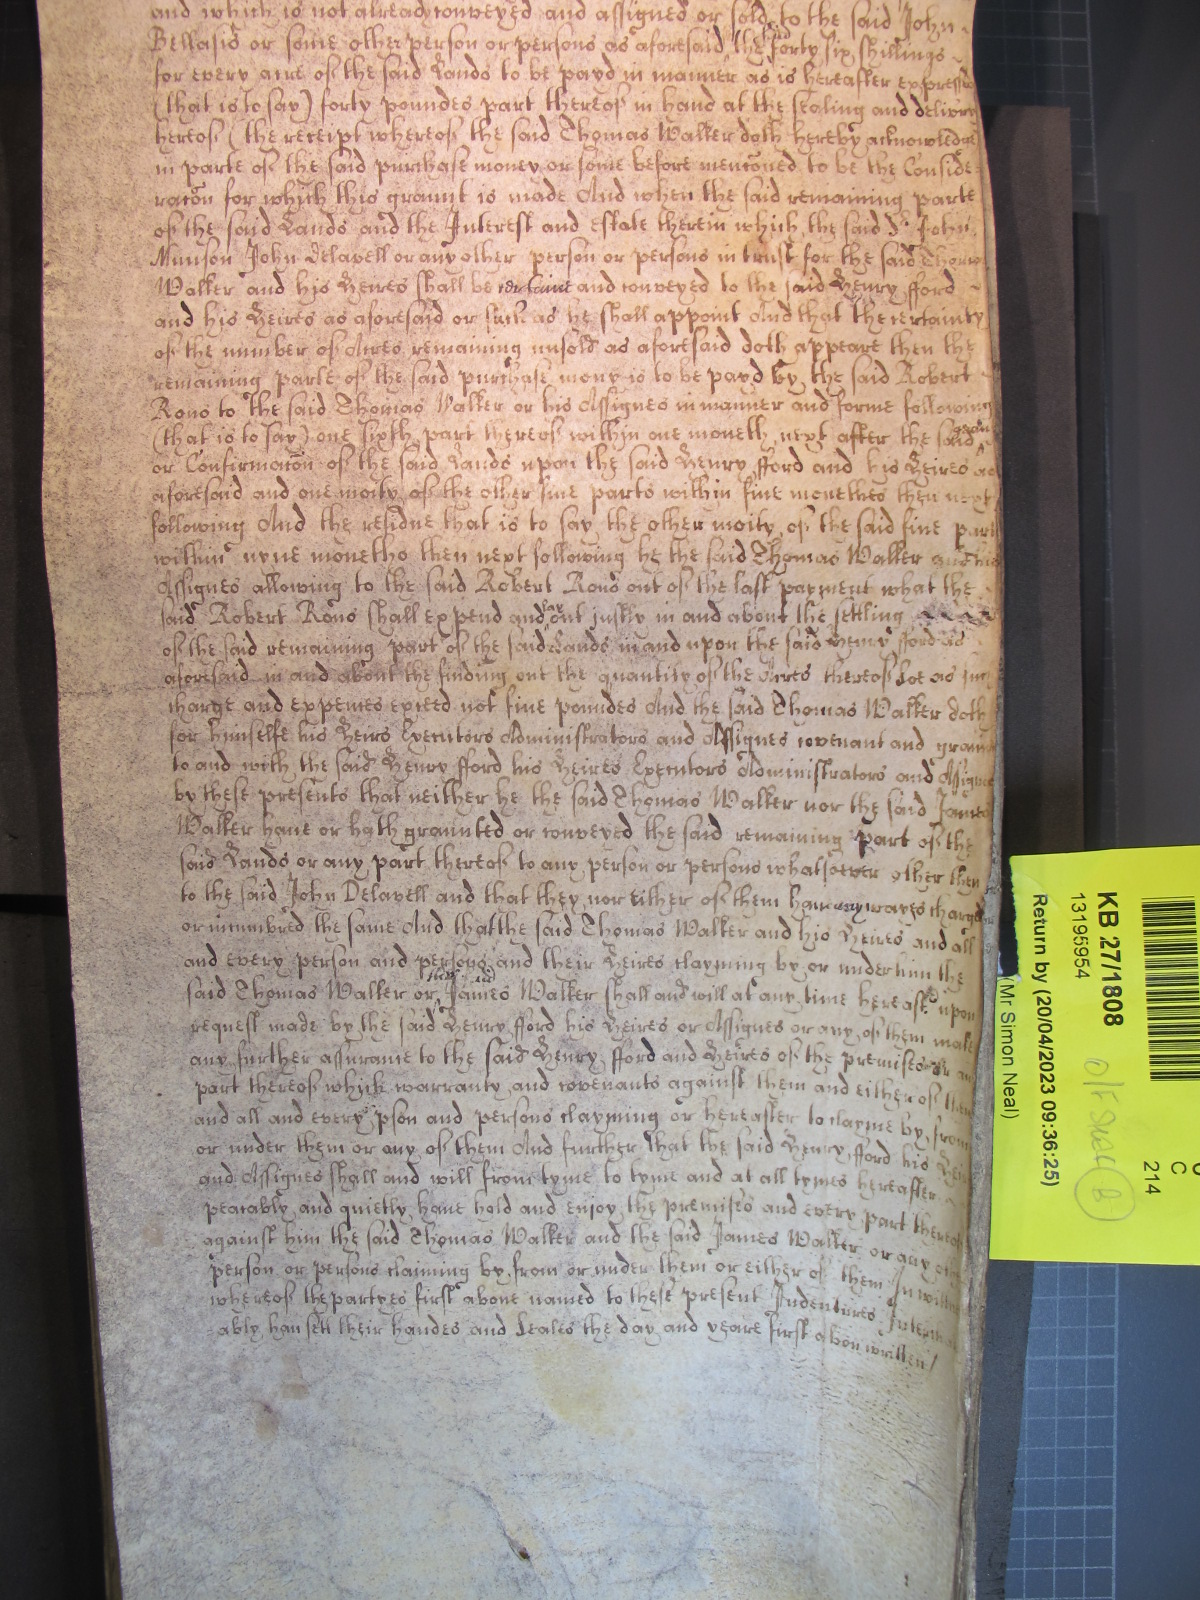 and which is not already conveyed and assigned or sold to the said John
Bellasis or some other person or persons as aforesaid the said forty six shillings
for every acre of the said Lands to be payd in manner as is hereafter expressed
(that is to say) forty poundes part thereof in hand at the sealing and delivery
hereof (the receipt whereof the said Thomas Walker doth hereby acknowledge
in parte of the said purchase money or some before mentoned to be the Conside-
racon for which this graunt is made And when the said remaining parte
of the said Lands and the Interest and estate therein which the said Sr John
Munson John Delavell or any other person or persons in trust for the said Thomas
Walker and his Heires shall be and conveyed to the said Henry fford
and his Heires as aforesaid or such as he shall appoint And that the certainty
of the number of Acres remaining unsold as aforesaid doth appeare then the
remaining parte of the said purchase mony is to be payd by the said Robert
Rous to the said Thomas Walker or his Assignes in manner and forme following
(that is to say) one sixth part thereof within one moneth next after the said
or Confirmacon of the said Lands upon the said Henry fford and his Heires as
aforesaid and one moity of the other five parts within five monethes then next
following And the residue that is to say the other moity of the said five parts
within nyne moneths then next following he the said Thomas Walker and his
Assignes allowing to the said Robert Rous out of the last payment what the
said Robert Rous shall expend and lay out justly in and about the settling
of the said remaining part of the said Lands in and upon the said Henry fford as
aforesaid in and about the finding out the quantity of the Acres thereof soe as such
charge and expences exceed not five poundes And the said Thomas Walker doth
for himselfe his Heirs Executors Administrators and Assignes covenant and graunt
to and with the said Henry fford his Heires Executors Administrators and Assignes
by these presents that neither he the said Thomas Walker nor the said James
Walker have or hath graunted or conveyed the said remaining part of the
said Lands or any part thereof to any person or persons whatsoever other then
to the said John Delavell and that they nor either of them have any wayes charged
or incumbred the same And that the said Thomas Walker and his Heires and all
and every person and persons and their Heires clayming by or under him the
said Thomas Walker or the said James Walker shall and will at any time hereafter upon
request made by the said Henry fford his Heires or Assignes or any of them make
any further assurance to the said Henry fford and Heires of the premises or any
part thereof which warranty and covenants against them and either of them
and all and every pson and persons clayming or hereafter to clayme by, from
or under them or any of them And further that the said Henry fford his Heires
and Assignes shall and will from tyme to tyme and at all tymes hereafter
peacably and quietly have hold and enjoy the premises and every part thereof
against him the said Thomas Walker and the said James Walker or any other
person or persons claiming by from or under them or either of them In witnes
whereof the partyes first above named to these present Indentures Interchange-
ably han sett their handes and Seales the day and yeare first above written/
KB 27/1808
13195954
Return by (20/04/2023 09:36:25)
(Mr Simon Neal)
C
214
B